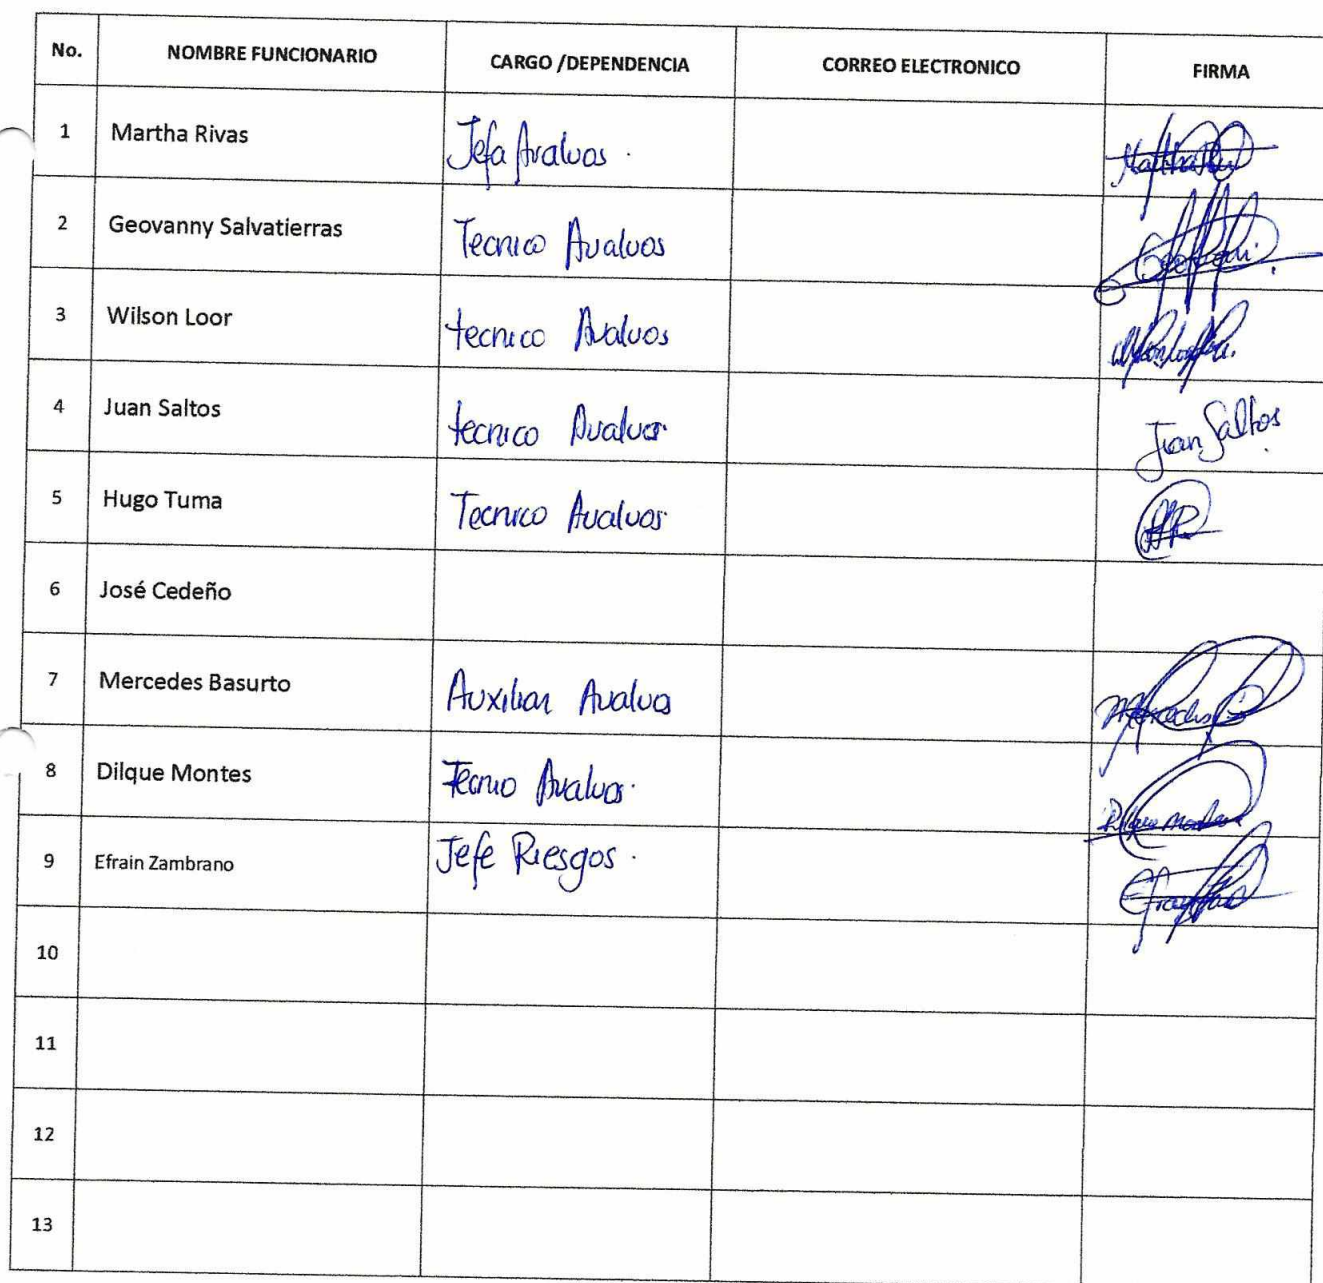 No. NOMBRE FUNCIONARIO CARGO /DEPENDENCIA CORREO ELECTRONICO FIRMA
1 Martha Rivas Jefa Avaluos.
2 Geovanny Salvatierras Tecnico Avaluos
3 Wilson Loor tecnico Avaluos
4 Juan Saltos tecnico Avaluos Juan Saltos
5 Hugo Tuma Tecnico Avaluos
6 José Cedeño
7 Mercedes Basurto Auxiliar Avaluo Mercedes
8 Dilque Montes Tecnio Avaluos.
9 Efrain Zambrano Jefe Riesgos.
10
11
12
13